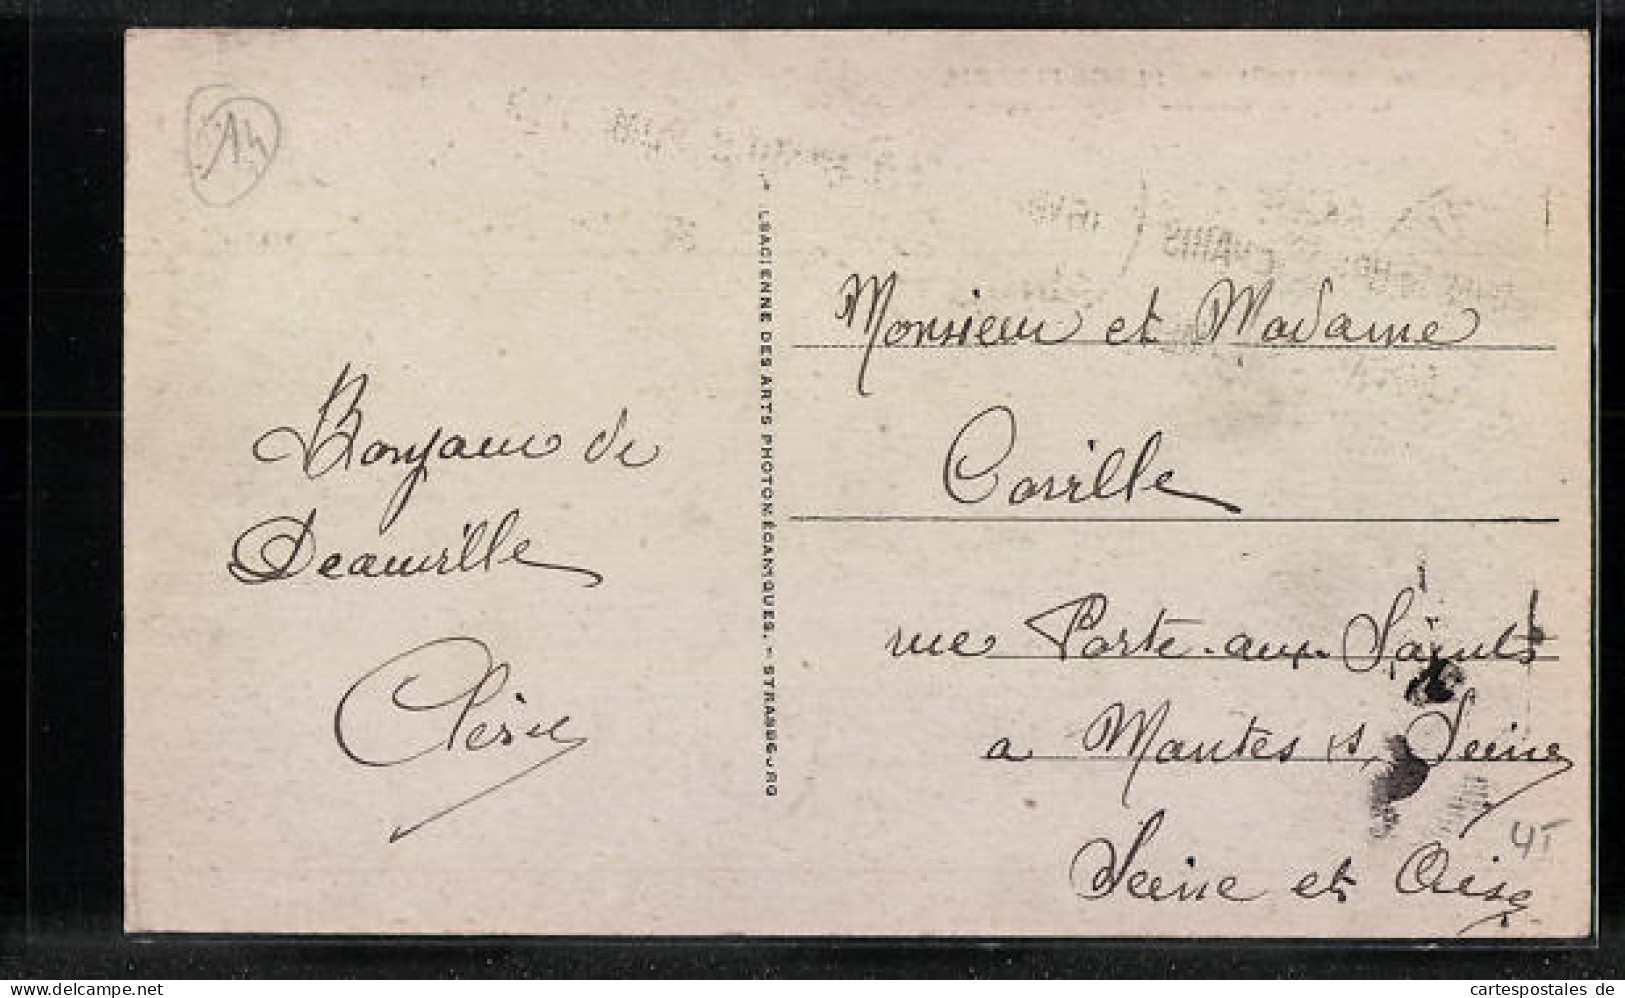 14
Bonjour de
Deauville
LSACIENNE DES ARTS PHOTOMÉCANIQUES. - STRASBOURG
Monsieur et Madame
Coville
rue Porte-aux-Saints
a Mantes s, Seine
Seine et Oise
45
cartespostales de